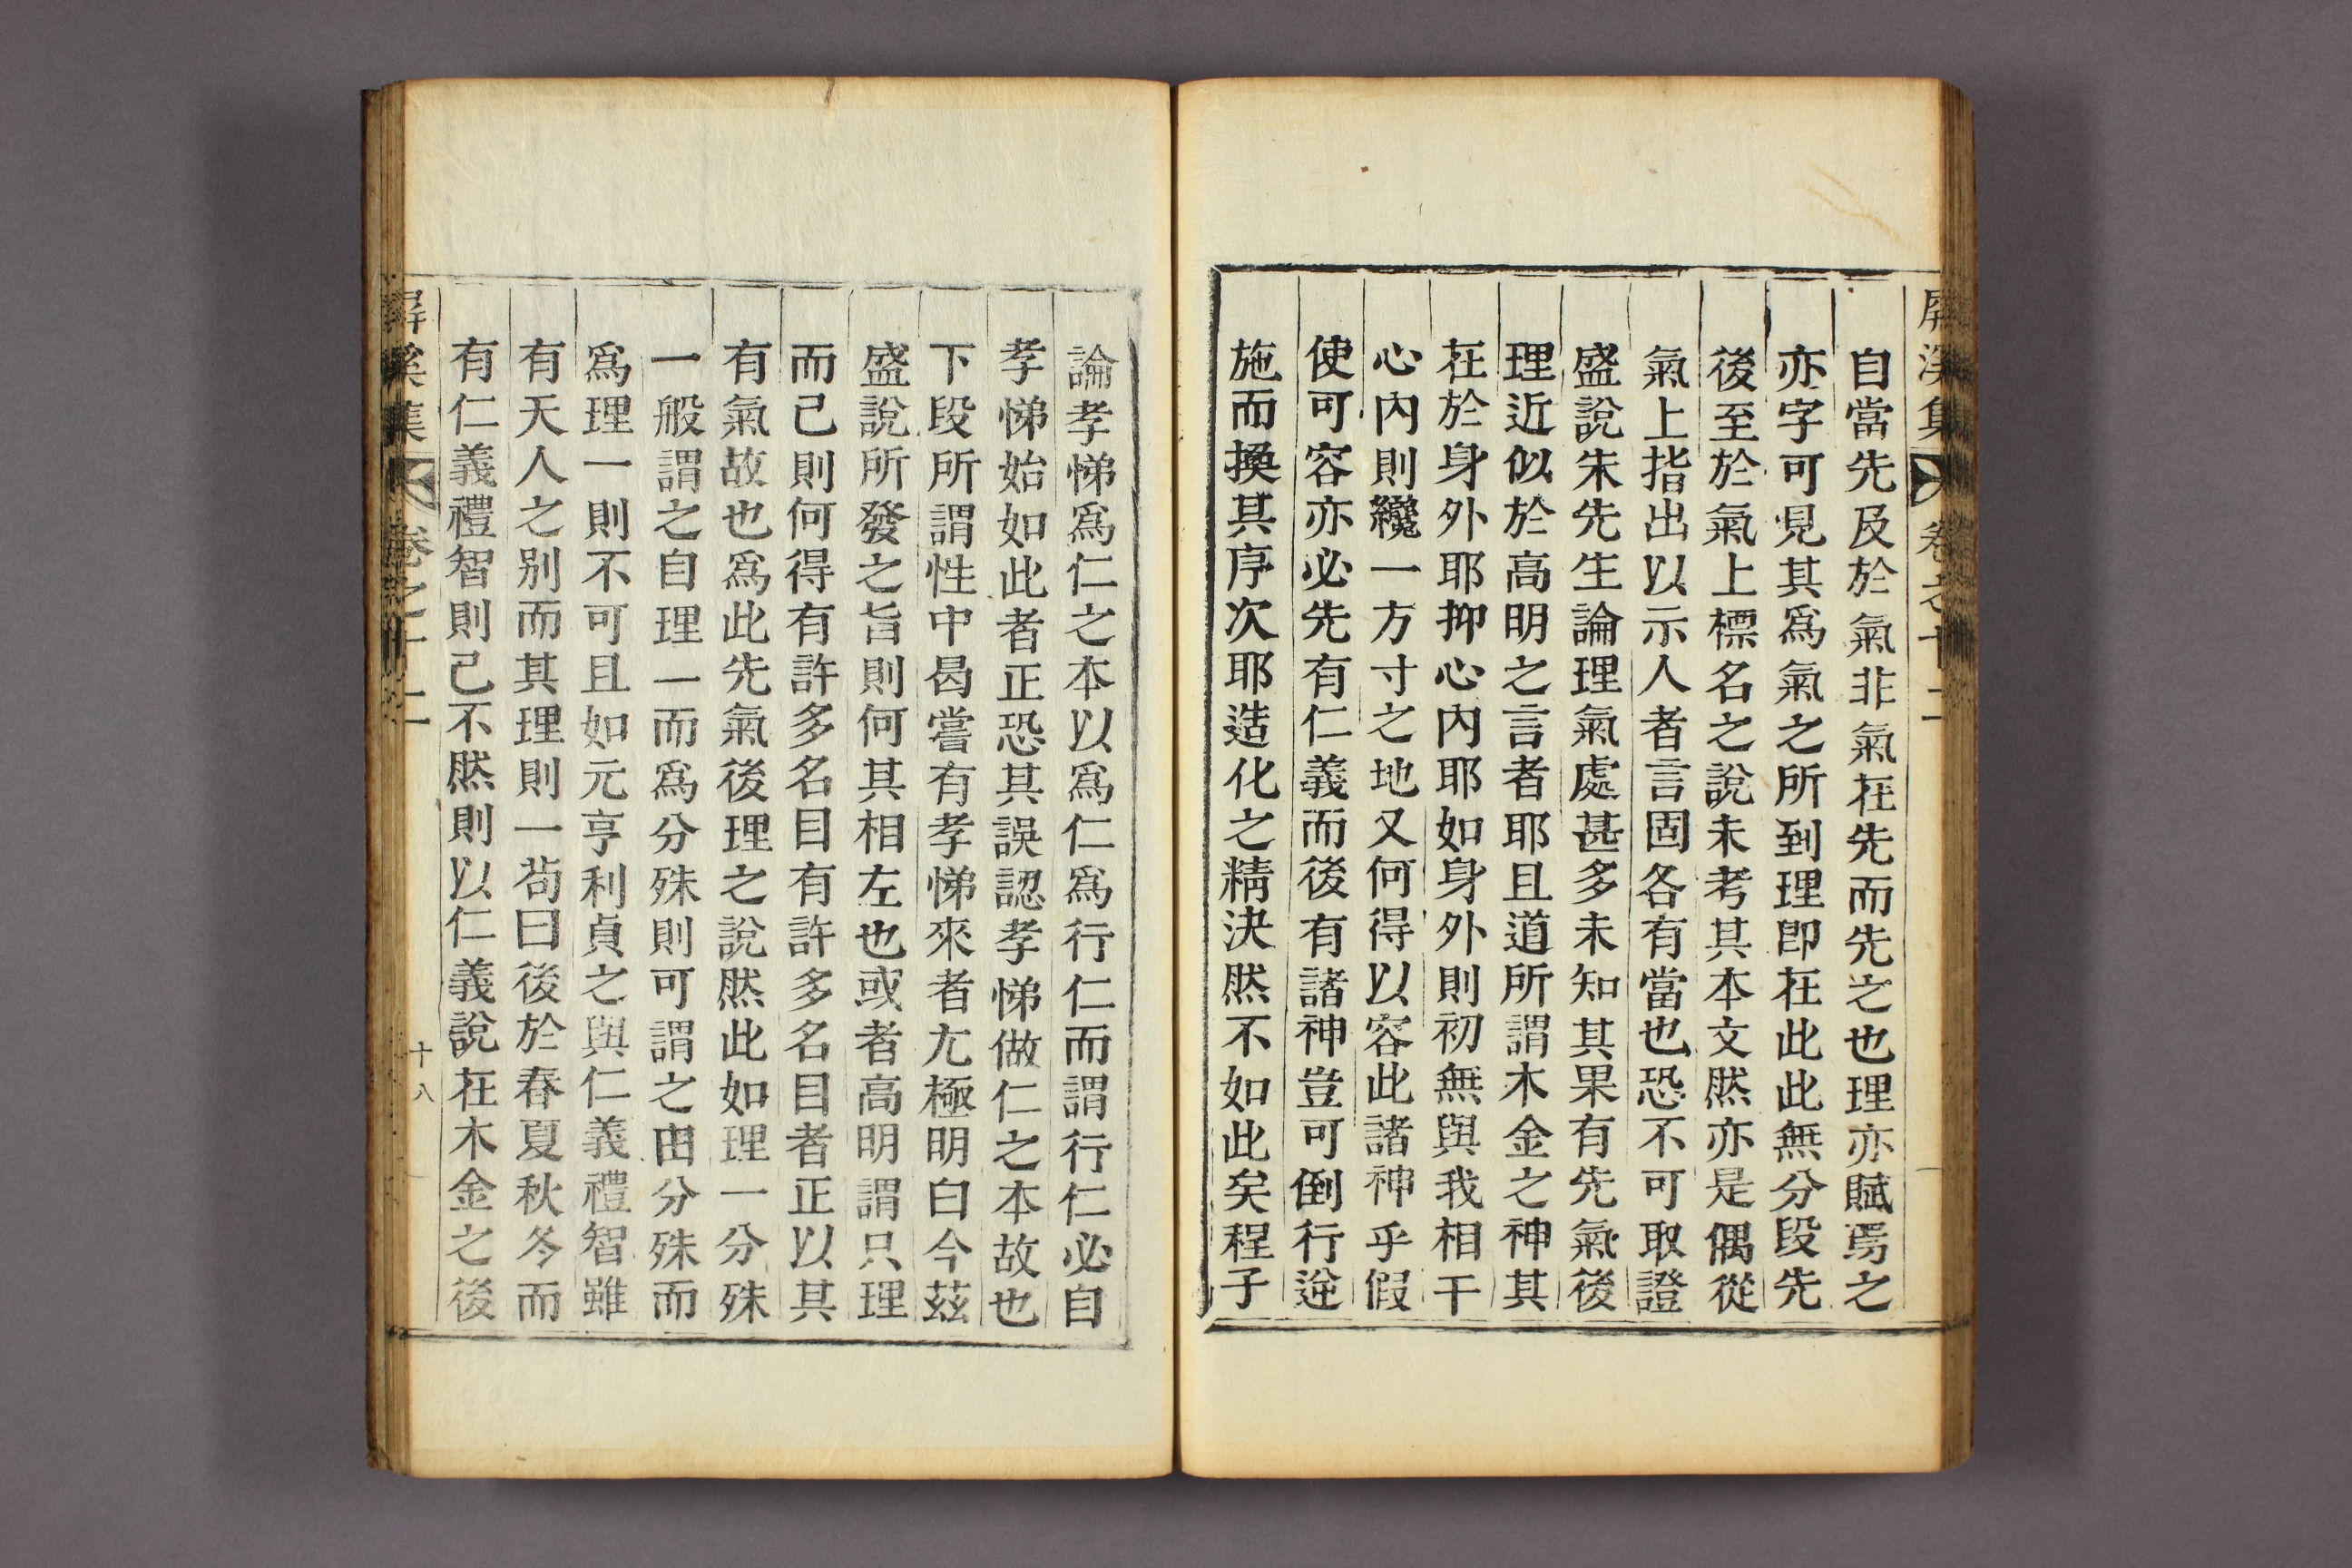 屏溪集 卷之十二
自當先及於氣非氣在先而先之也理亦賦焉之
亦字可見其爲氣之所到理卽在此此無分段先
後至於氣上標名之說未考其本文然亦是偶從
氣上指出以示人者言固各有當也恐不可取證
盛說朱先生論理氣處甚多未知其果有先氣後
理近似於高明之言者耶且道所謂木金之神其
在於身外耶抑心內耶如身外則初無與我相干
心內則纔一方寸之地又何得以容此諸神乎假
使可容亦必先有仁義而後有諸神豈可倒行逆
施而換其序次耶造化之精決然不如此矣程子
論孝悌爲仁之本以爲仁爲行仁而謂行仁必自
孝悌始如此者正恐其誤認孝悌做仁之本故也
下段所謂性中曷嘗有孝悌來者尤極明白今玆
盛說所發之旨則何其相左也或者高明謂只理
而已則何得有許多名目有許多名目者正以其
有氣故也爲此先氣後理之說然此如理一分殊
一般謂之自理一而爲分殊則可謂之由分殊而
爲理一則不可且如元亨利貞之與仁義禮智雖
有天人之別而其理則一苟曰後於春夏秋冬而
有仁義禮智則已不然則以仁義說在木金之後
屏溪集 卷之十二 十八